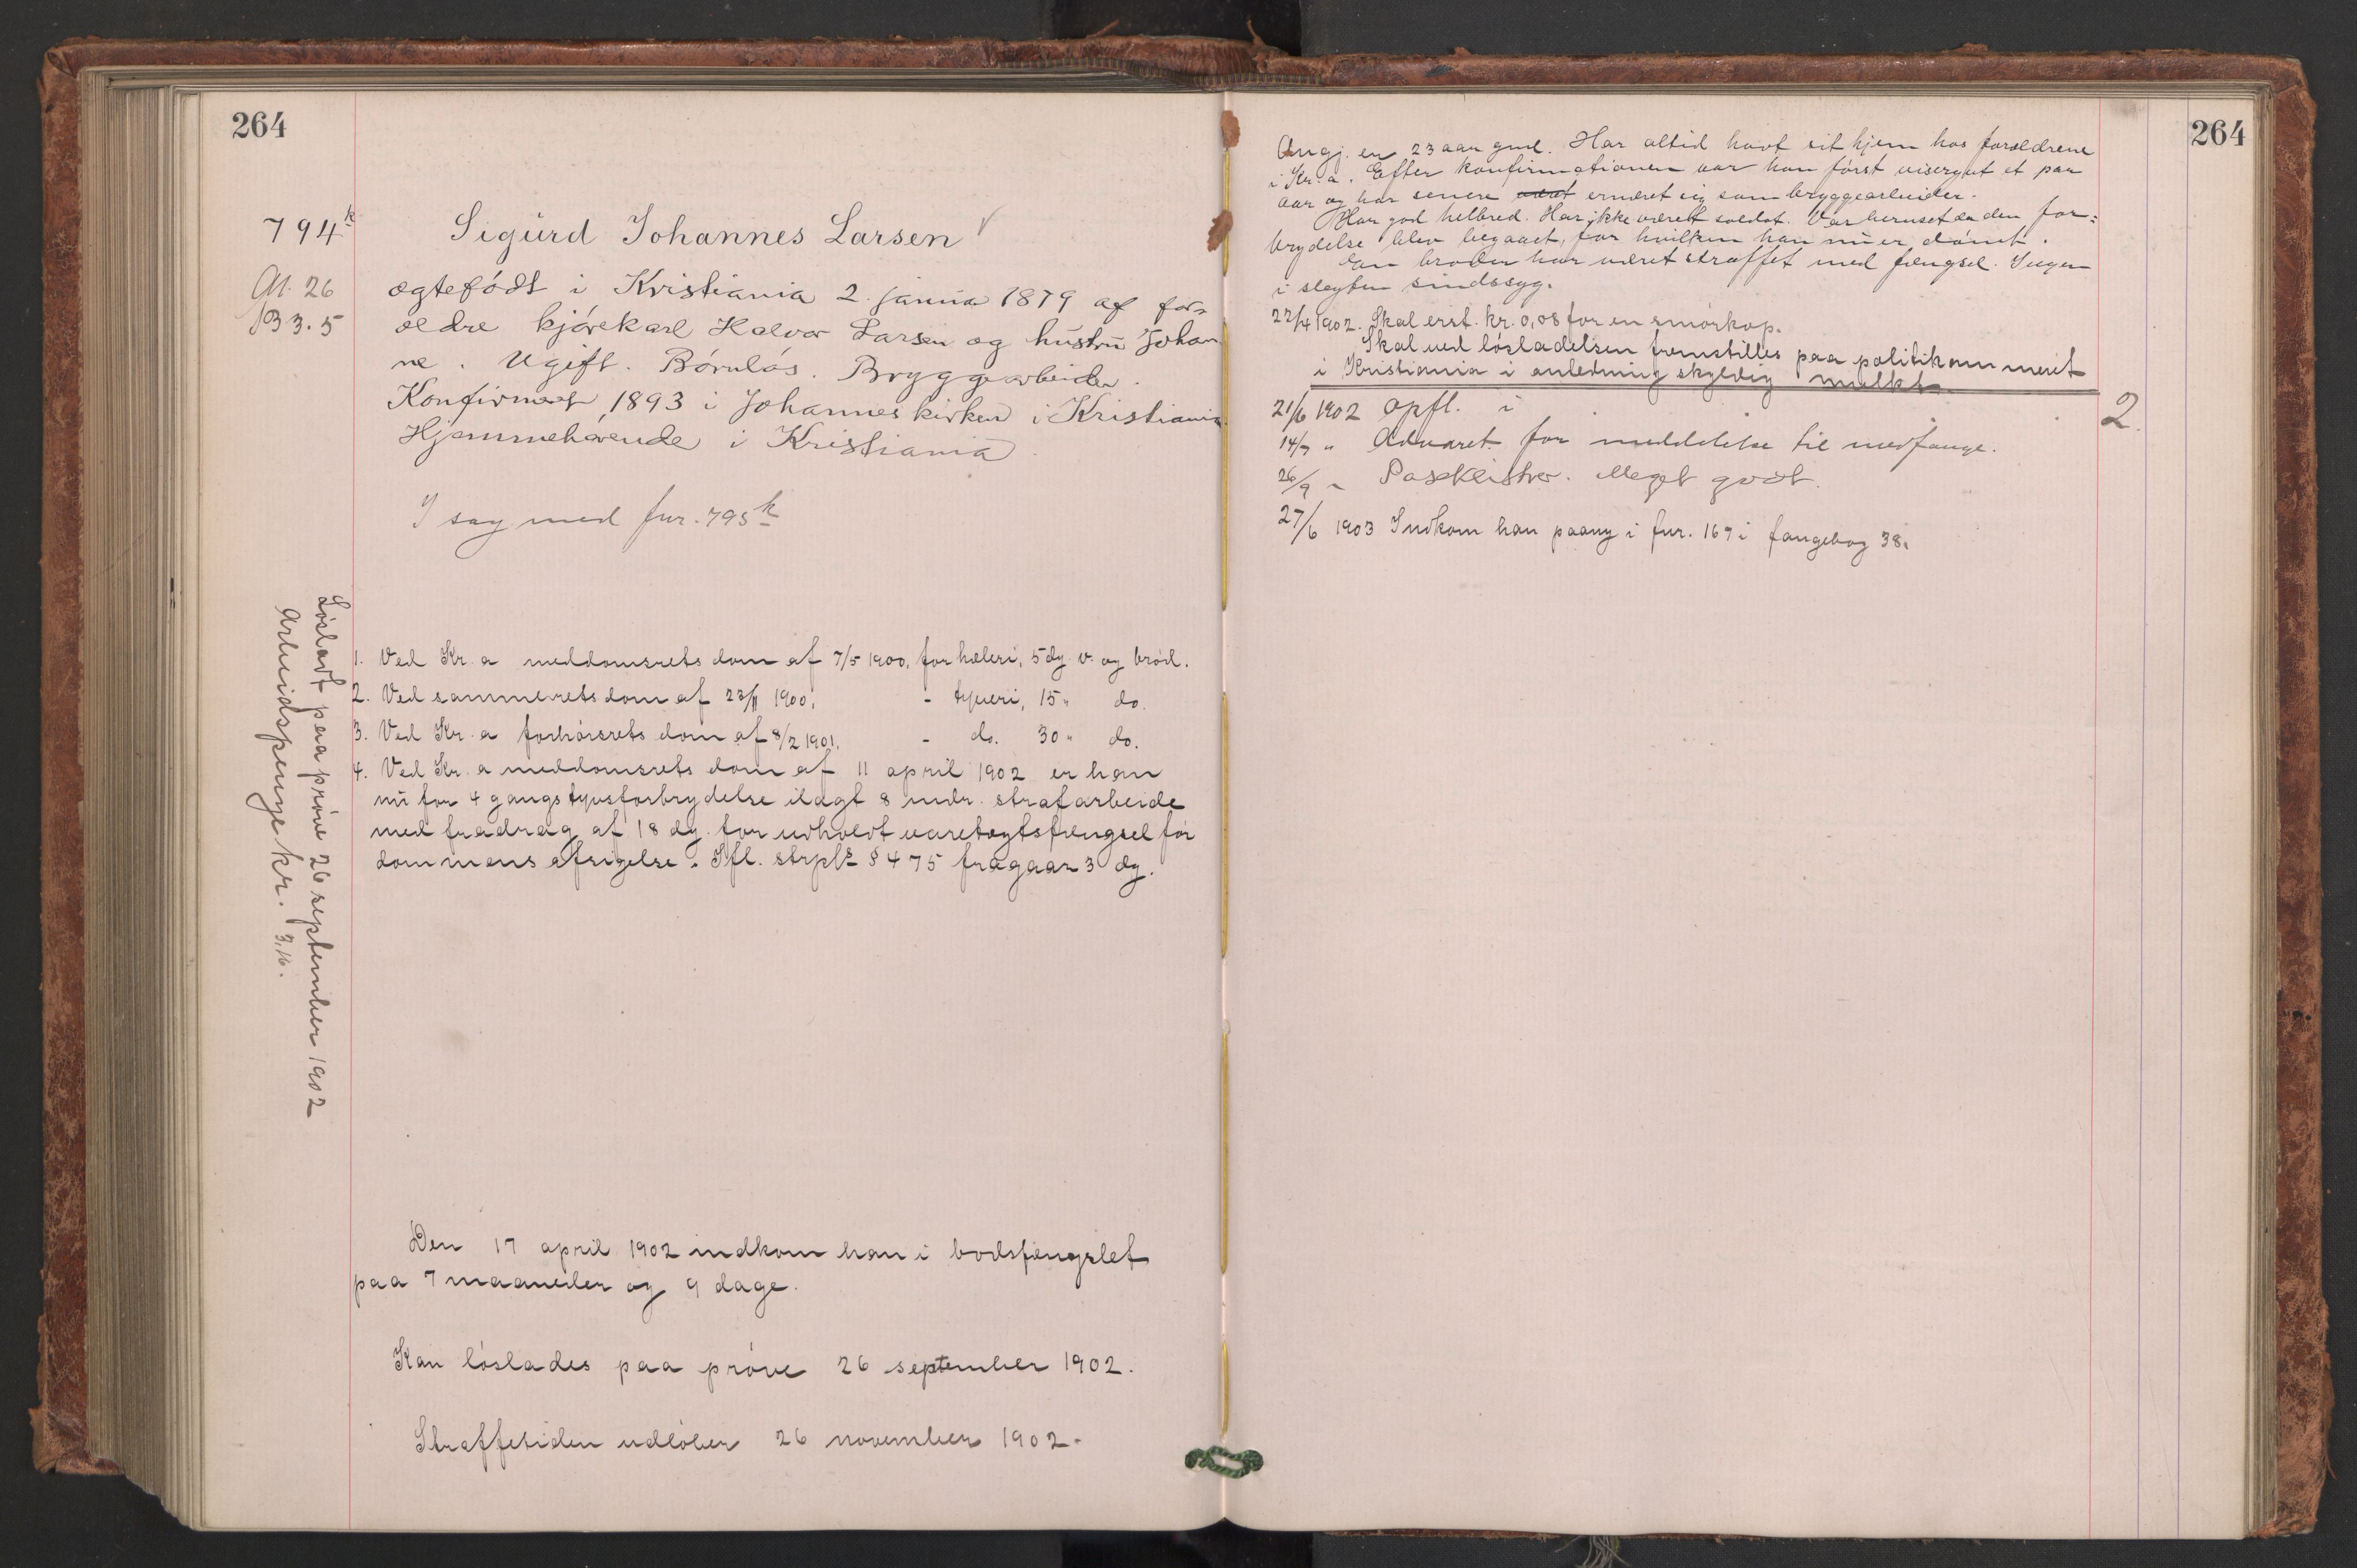 264
794k
Sigurd Johannes Larsen
Al. 26
B 3.5
ægtefödt i Kristiania 2. janua 1879 af for=
ældre kjörekarl Halvor Larsen og hustru Johan
ne. Ugift. Börnlös. Bryggearbeider.
Konfirmert 1893 i Johanneskirken i Kristiania
Hjemmehörende i Kristiania
I sag med fnr. 795k
1. Ved Kr.a meddomsrets dom af 7/5 1900, for hæleri, 5 dg. v. og bröd.
2. Ved sammerets dom af 23/11 1900, - tyveri, 15 " do.
3. Ved Kr.a forhörsrets dom af 8/2 1901, - do. 30 " do.
4. Ved Kr.a meddomsrets dom af 11 april 1902 er han
nu for 4 gangs tyvsforbrydelse ilagt 8 mdr. strafarbeide
med fradrag af 18 dg. for udholdt varetægtsfængsel för
dommens afsigelse. Ifl. strpls § 475 fragaar 3 dg.
Lösladt paa pröve 26 september 1902
Arbeidspenge kr. 3,16.
Den 17 april 1902 indkom han i bodsfængslet
paa 7 maaneder og 9 dage.
Kan löslades paa pröve 26 september 1902.
Straffetiden udlöber 26 november 1902.
264
Angj. er 23 aar gml. Har altid havt sit hjem hos forældrene
i Kr.a. Efter konfirmationen var han först visergut et par
aar og har senere været ernæret sig som bryggearbeider.
Har god helbred. Har ikke været soldat. Var beruset da den for=
brydelse blev begaaet, for hvilken han nu er dömt.
En broder har været straffet med fængsel. Ingen
i slegten sindssyg.
22/4 1902. Skal erst. kr. 0,08 for en smörkop.
Skal ved lösladelsen fremstilles paa politikammeret
i Kristiania i anledning skyldig mulkt
21/6 1902 Opfl. i 2.
14/7 " Advaret for meddelelse til medfange.
26/9 " Poseklistrer. Meget godt.
27/6 1903 Indkom han paany i fnr. 167 i fangebog 38.